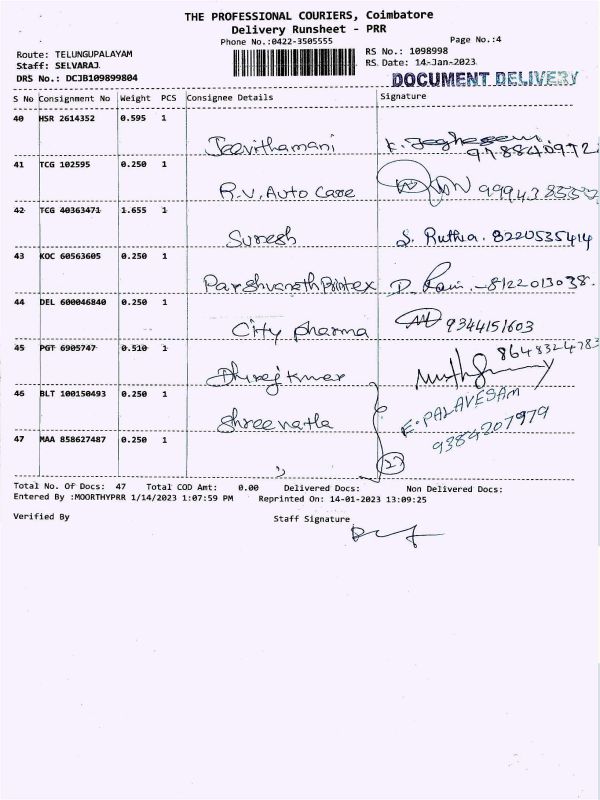 THE PROFESSIONAL COURIERS, Coimbatore
Delivery Runsheet - PRR
Phone No.:0422-3505555 Page No.:4
Route: TELUNGUPALAYAM RS No.: 1098998
Staff: SELVARAJ RS Date: 14-Jan-2023
DRS No.: DCJB109899804 DOCUMENT DELIVERY
S No Consignment No Weight PCS Consignee Details Signature
40 HSR 2614352 0.595 1
Jeevithamani K.
41 TCG 102595 0.250 1
R.V. Auto Care
42 TCG 40363471 1.655 1
Suresh S. Ruthra. 8220535414
43 KOC 60563605 0.250 1
Parshvanath Printex D. Ravi - 8122013038.
44 DEL 600046840 0.250 1
City pharma 9344151603
45 PGT 6905747 0.510 1 8648324783
Dhiraj kumar
46 BLT 100150493 0.250 1
Shree natha E. PALAVESAM
9384207979
47 MAA 858627487 0.250 1
27
Total No. Of Docs: 47 Total COD Amt: 0.00 Delivered Docs: Non Delivered Docs:
Entered By :MOORTHYPRR 1/14/2023 1:07:59 PM Reprinted On: 14-01-2023 13:09:25
Verified By Staff Signature